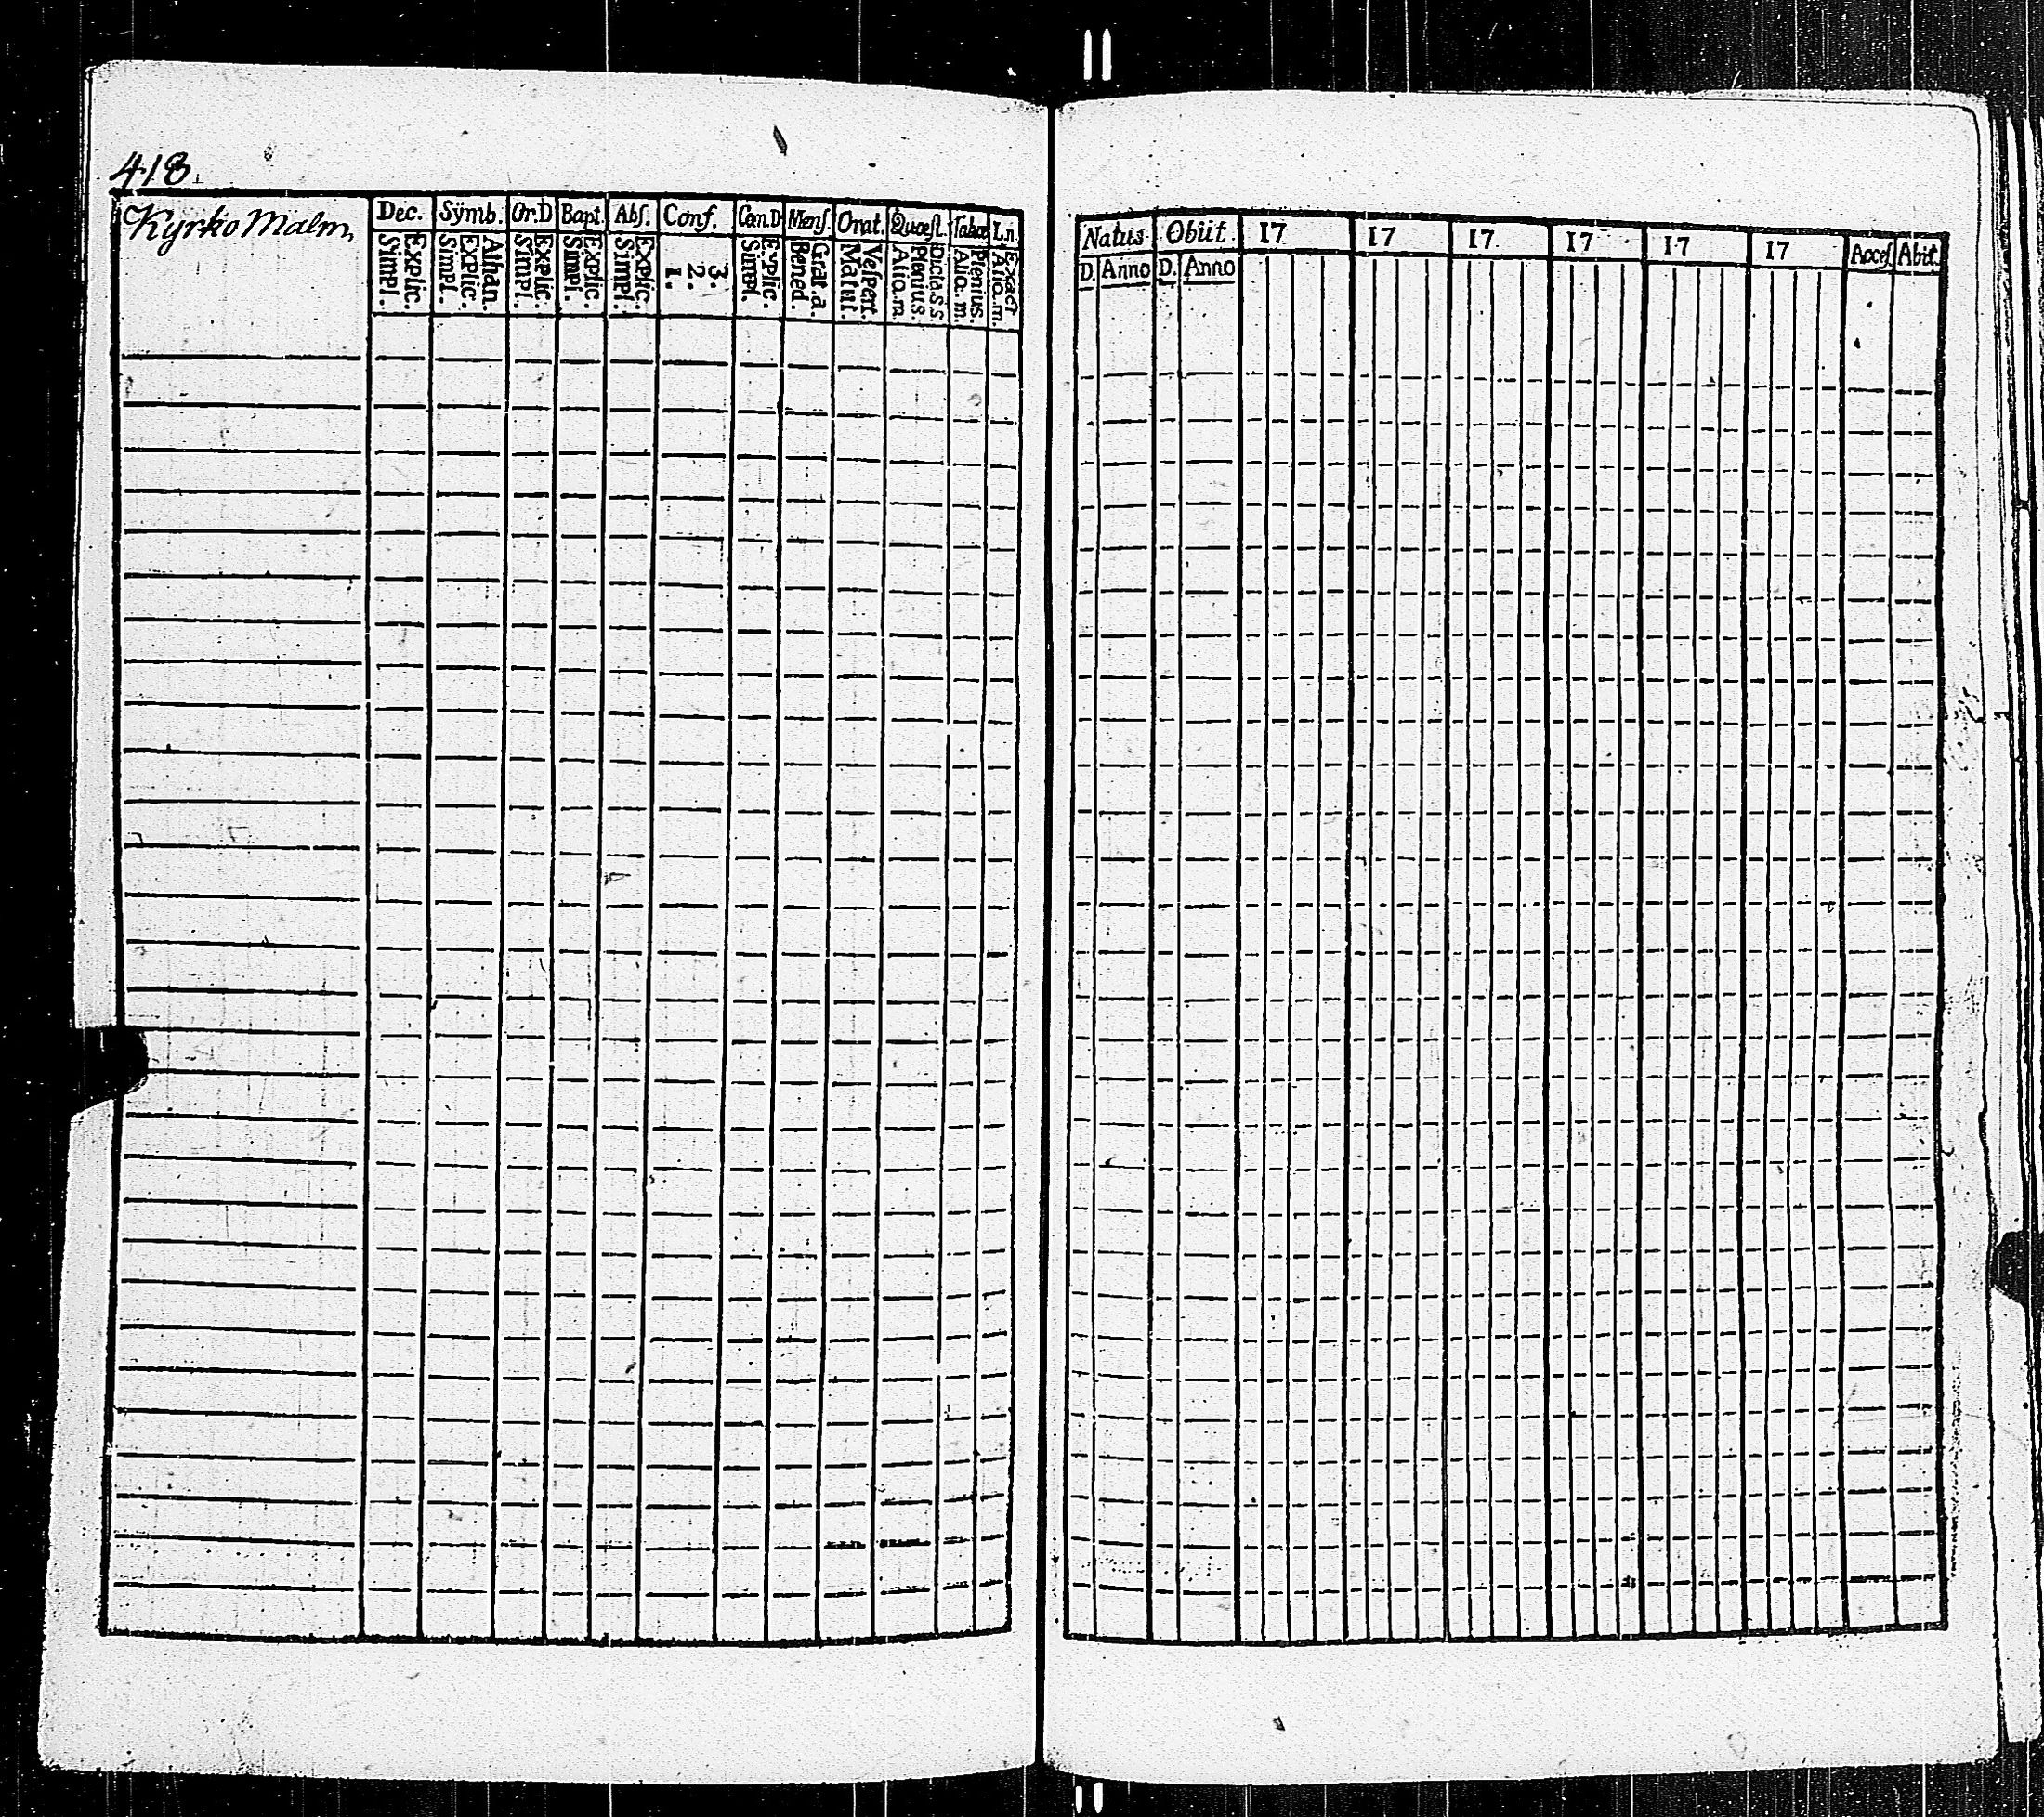 418
Kyrko Malm,
Dec. Symb. Or.D Bapt. Abs. Conf. Can.D Mens. Orat. Quæst. L.n.
Explic. Simpl.
Athan. Explic. Simpl.
Explic. Simpl.
Explic. Simpl.
Explic. Simpl.
3. 2. 1.
Explic. Simpl.
Grat. a. Bened.
Vespert. Matut.
Dicta.s.s. Plenius. Alio.m
Plenius. Alio.m.
Exact Alio.m.
Natus Obiit 17 17 17 17 17 17 Acces Abit.
D. Anno D. Anno